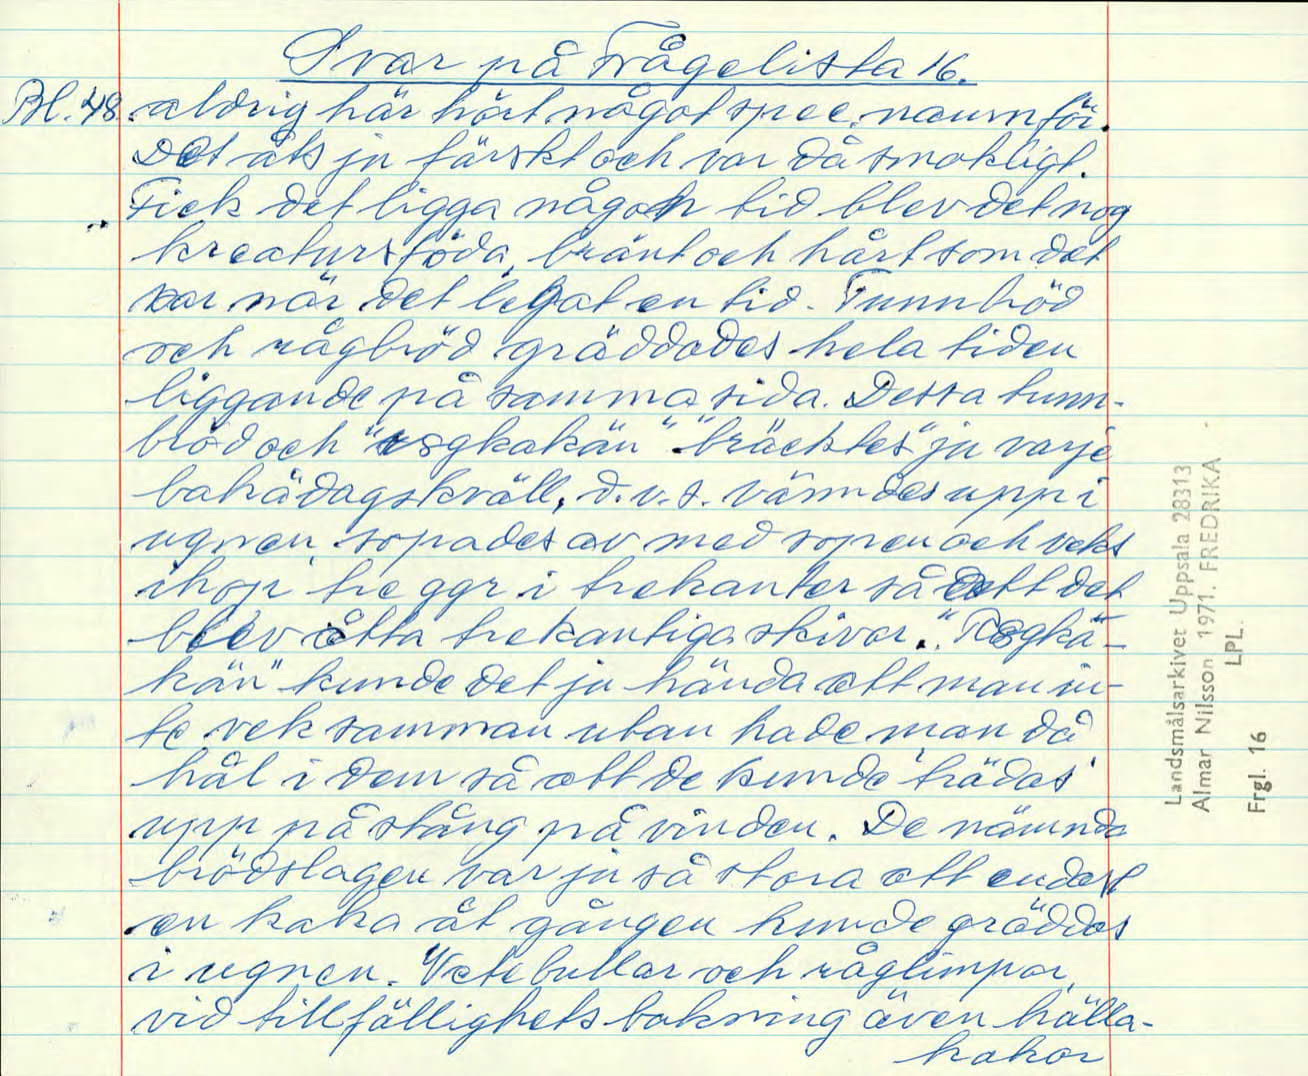 Svar på Frågelista 16.
Bl. 48. aldrig här hört något spec. namn för.
Det åts ju färskt och var då smakligt.
Fick det ligga någon tid blev det nog
kreatursföda, bränt och hårt som det
var när det legat en tid. Tunnbröd
och rågbröd gräddades hela tiden
liggande på samma sida. Dessa tunn-
bröd och "rogkakän" "bräcktes" ju varje
bakädagskväll, d.v.s. värmdes upp i
ugnen, sopades av med sopen och veks
ihop tre ggr i trekanter så att det
blev åtta trekantiga skivor. "Rogkä-
kän" kunde det ju hända att man in-
te vek samman utan hade man då
hål i dem så att de kunde "trädas"
upp på stång på vinden. De nämnda
brödslagen var ju så stora att endast
en kaka åt gången kunde gräddas
i ugnen. Vetebullar och råglimpor,
vid tillfällighetsbakning även hälla-
kakor
Landsmålsarkivet Uppsala 28313
Almar Nilsson 1971. FREDRIKA
LPL.
Frgl. 16